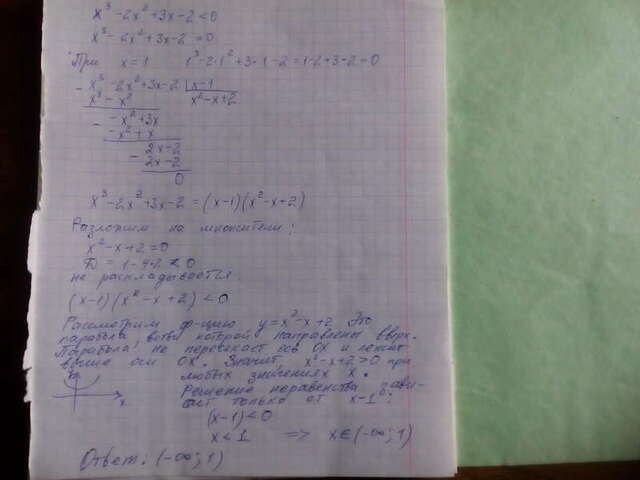 x³-2x²+3x-2<0
x³-2x²+3x-2=0
При x=1 1³-2·1²+3·1-2=1-2+3-2=0
- x³-2x²+3x-2 | x-1
x³-x² x²-x+2
- -x²+3x
-x²+x
- 2x-2
2x-2
0
x³-2x²+3x-2=(x-1)(x²-x+2)
Разложим на множители:
x²-x+2=0
D=1-4·2<0
не раскладывается
(x-1)(x²-x+2)<0
Рассмотрим ф-цию y=x²-x+2 Это
парабола ветви которой направлены вверх.
Парабола не пересекает ось OX и лежит
выше оси OX. Значит x²-x+2>0 при
любых значениях x.
y Решение неравенства зави-
x сит только от x-1:
(x-1)<0
x<1 => x∈(-∞;1)
Ответ: (-∞;1)